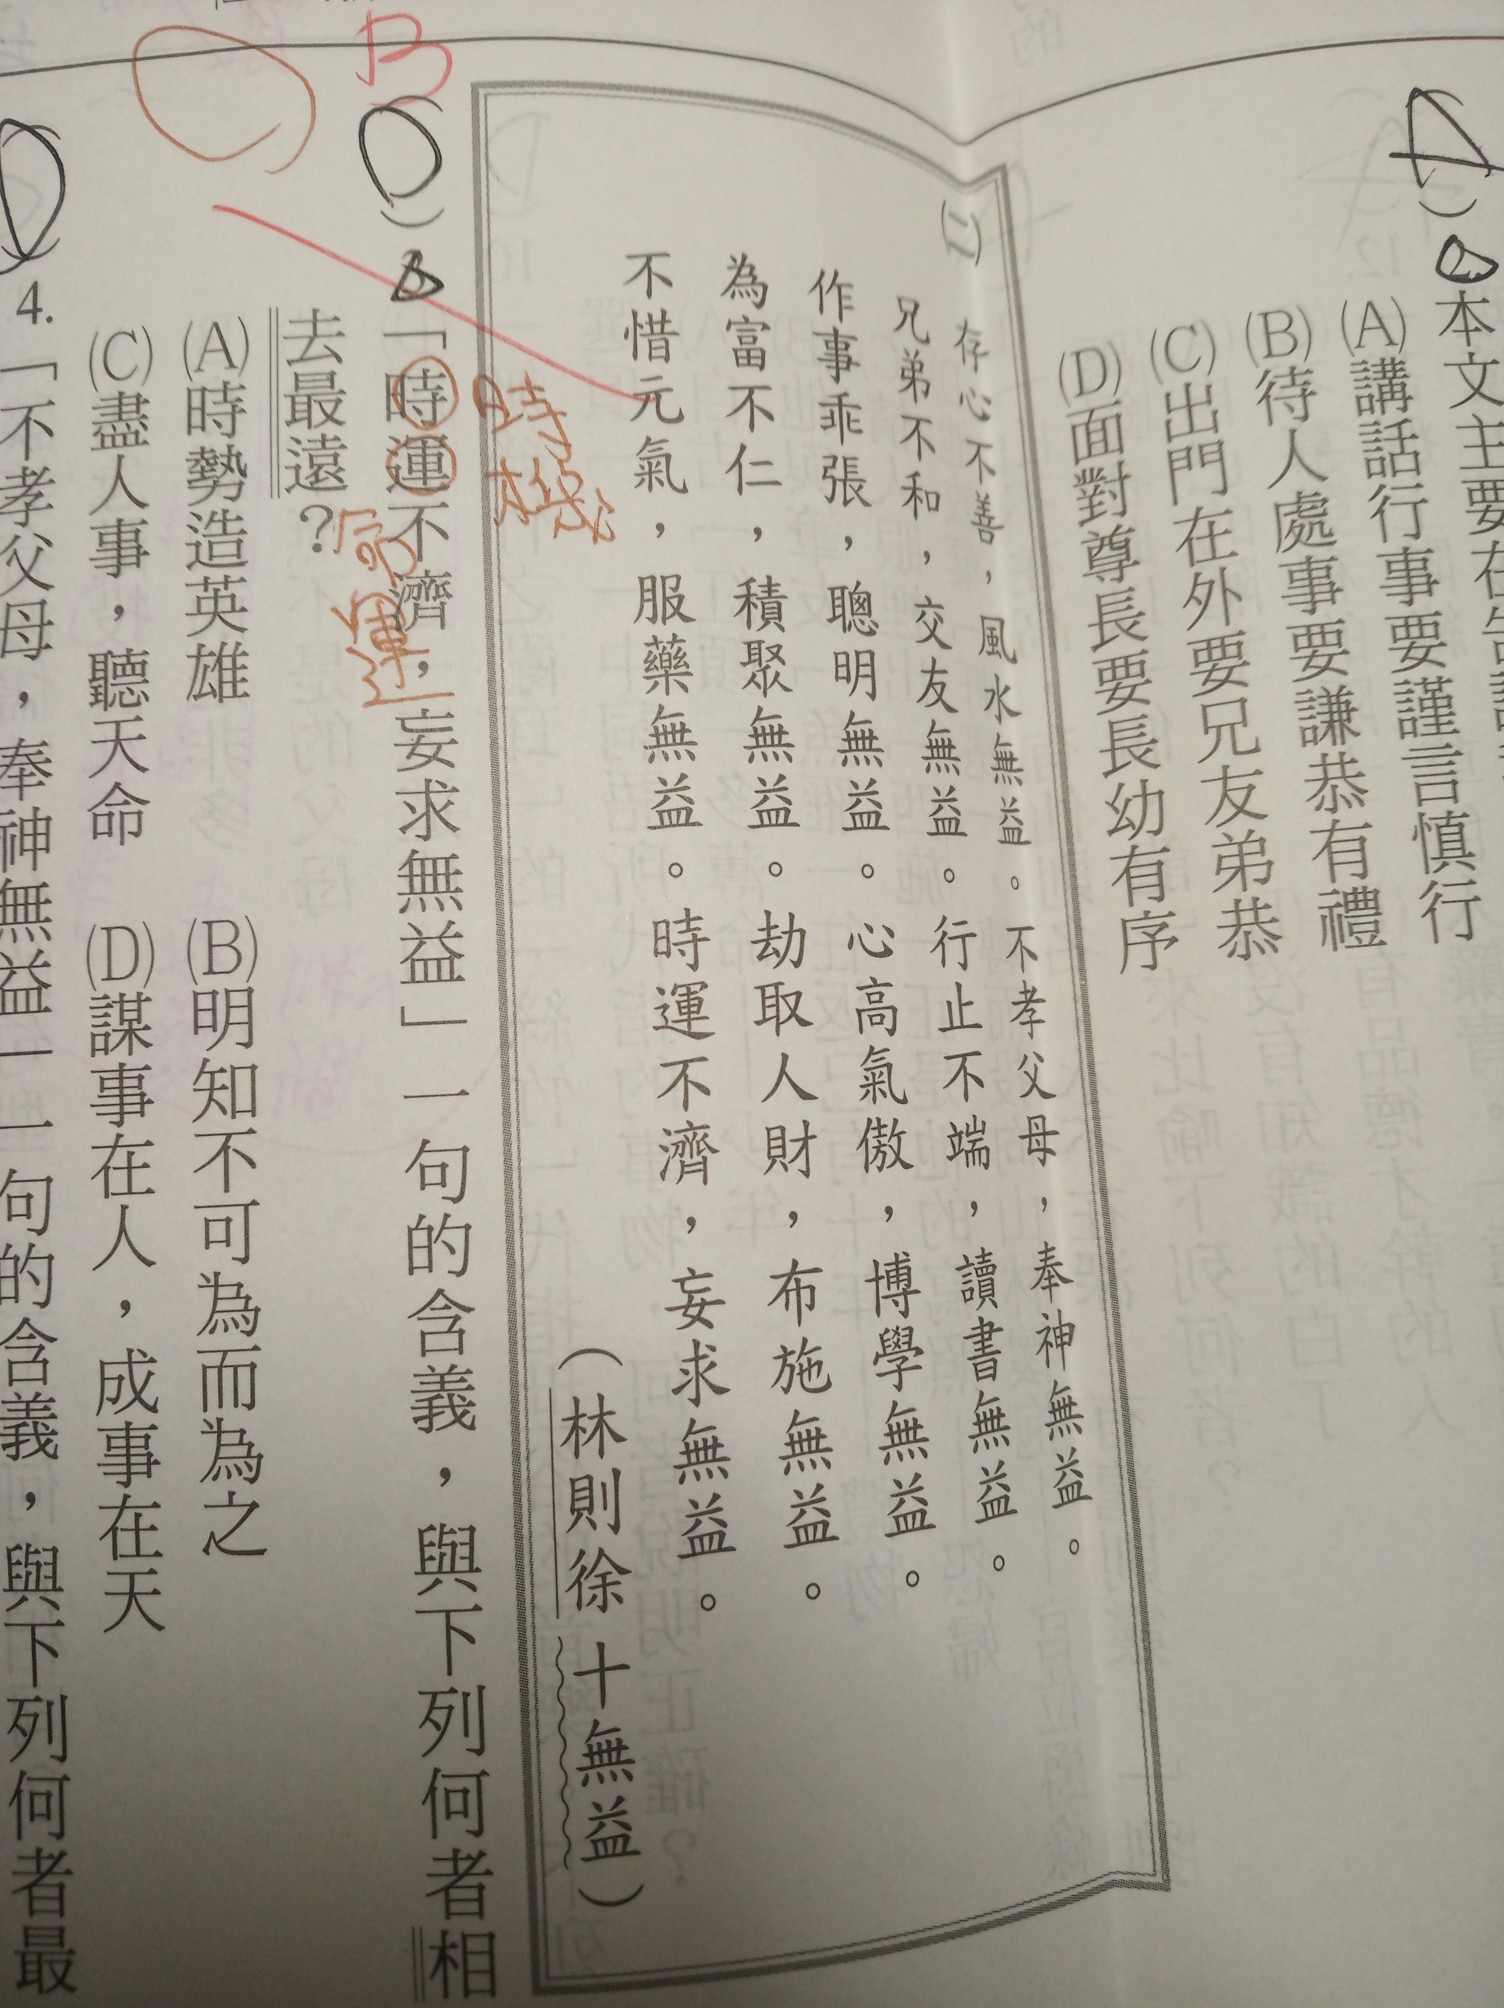 本文主要在
(A)講話行事要謹言慎行
(B)待人處事要謙恭有禮
(C)出門在外要兄友弟恭
(D)面對尊長要長幼有序
A
(二)
存心不善，風水無益。不孝父母，奉神無益。
兄弟不和，交友無益。行止不端，讀書無益。
作事乖張，聰明無益。心高氣傲，博學無益。
為富不仁，積聚無益。劫取人財，布施無益。
不惜元氣，服藥無益。時運不濟，妄求無益。
（林則徐十無益）
B
D
「時運不濟，妄求無益」一句的含義，與下列何者相
時機
命運
去最遠？
(A)時勢造英雄
(B)明知不可為而為之
(C)盡人事，聽天命
(D)謀事在人，成事在天
D
4.「不孝父母，奉神無益」一句的含義，與下列何者最